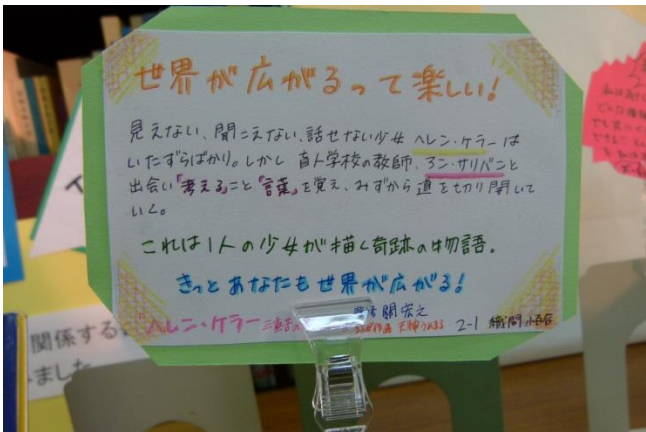 世界が広がるって楽しい!
見えない、聞こえない、話せない少女 ヘレン・ケラーは
いたずらばかり。しかし 盲人学校の教師、アン・サリバンと
出会い「考える」こと「言葉」を覚え、みずから道を切り開いて
いく。
これは1人の少女が描く奇跡の物語。
きっと あなたも 世界が広がる!
ヘレン・ケラー 関宏之 2-1
関係する
ました